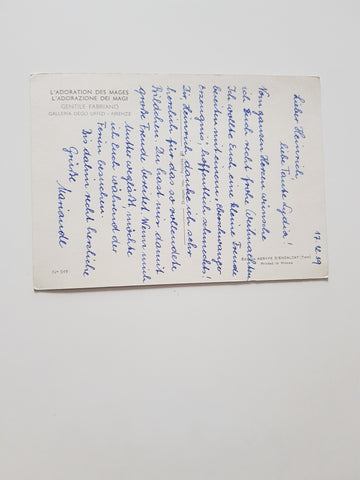 L'ADORATION DES MAGES
L'ADORAZIONE DEI MAGI
GENTILE FABRIANO
GALLERIA DEGLI UFFIZI - FIRENZE
17.12.59
Lieber Heinrich,
liebe Tante Lydia!
Vom ganzen Herzen wünsche
ich Euch recht frohe Weihnachten
Ich wollte Euch eine kleine Freude
bereiten mit einem
Erzeugnis, hoffentlich schmeckts!
Dir Heinrich danke ich sehr
herzlich für das so vollendete
Bildchen. Du hast mir damit
große Freude bereitet. Wenn mich
Mutter weglässt möchte
ich Euch während der
Ferien besuchen.
Bis dahin recht herzliche
Grüße
Mariandl
Nº 549
D'ENCALCAT (Tarn)
Printed in France